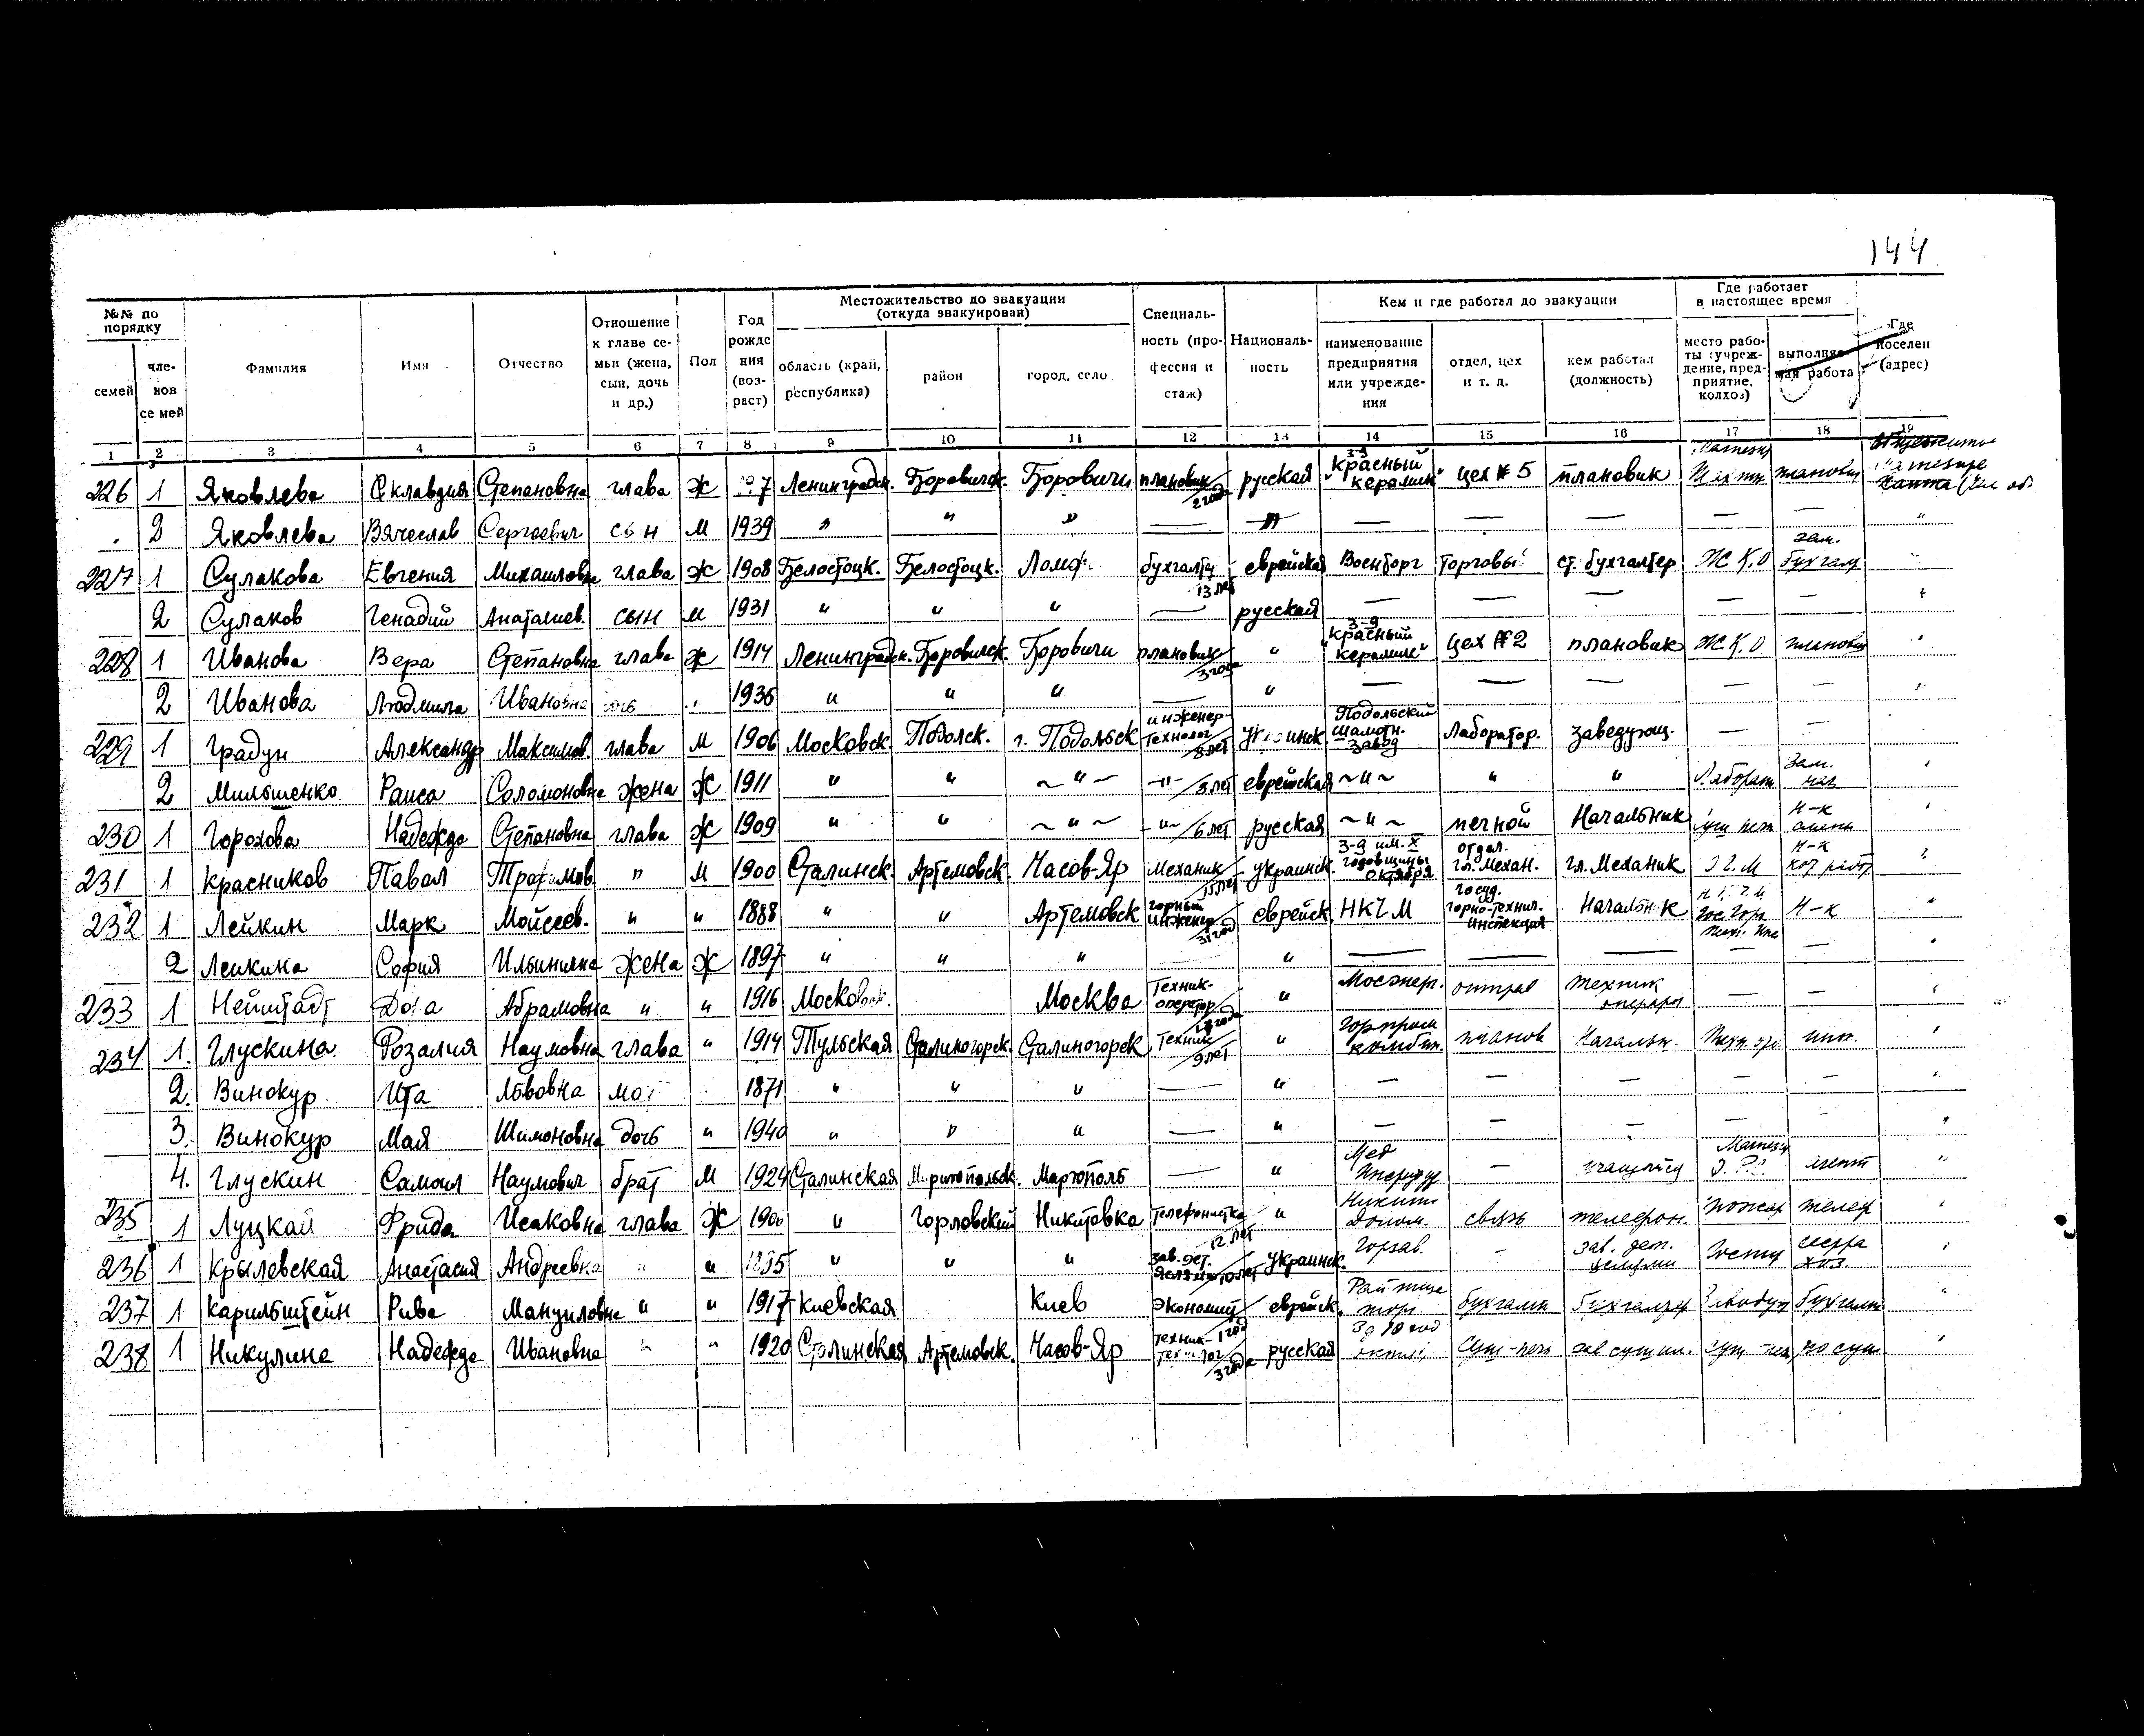 144
№№ по порядку | Фамилия | Имя | Отчество | Отношение к главе семьи (жена, сын, дочь и др.) | Пол | Год рождения (возраст) | Местожительство до эвакуации (откуда эвакуирован) | Специальность (профессия и стаж) | Национальность | Кем и где работал до эвакуации | Где работает в настоящее время | Где поселен (адрес)
семей | членов семей | область (край, республика) | район | город, село | наименование предприятия или учреждения | отдел, цех и т. д. | кем работал (должность) | место работы (учреждение, предприятие, колхоз) | выполняемая работа
1 | 2 | 3 | 4 | 5 | 6 | 7 | 8 | 9 | 10 | 11 | 12 | 13 | 14 | 15 | 16 | 17 | 18 | 19
226 | 1 | Яковлева | Клавдия | Степановна | глава | Ж | Ленинградск. | Боровичск. | Боровичи | плановик 2 года | русская | з-д "Красный керамик" | цех № 5 | плановик | плановик
2 | Яковлева | Вячеслав | Сергеевич | сын | М | 1939 | " | " | " | — | " | — | — | — | — | — | "
227 | 1 | Сулакова | Евгения | Михаиловна | глава | Ж | 1908 | Белостоцк. | Белостоцк. | бухгалтер 13 лет | еврейская | Военторг | торговый | ст. бухгалтер | Ж К.О | зам. бухгал
2 | Сулаков | Генадий | Анаталиев. | сын | М | 1931 | " | " | " | — | русская | — | — | — | — | —
228 | 1 | Иванова | Вера | Степановна | глава | Ж | 1914 | Ленинградск. | Боровичск. | Боровичи | плановик 3 года | " | з-д "Красный керамик" | цех № 2 | плановик | Ж К.О | плановик | "
2 | Иванова | Людмила | Ивановна | дочь | " | 1936 | " | " | " | — | " | — | — | — | — | —
229 | 1 | Градун | Александр | Максимов. | глава | М | 1906 | Московск | Подольск. | г. Подольск | инженер технолог 8 лет | Подольский шамотн. завод | Лаборатор. | заведующ. | — | —
2 | Мильшенко | Раиса | Соломоновна | жена | Ж | 1911 | " | " | ~ " ~ | -"- / 3 лет | еврейская | ~ " ~ | " | " | Лаборат | зам. | "
230 | 1 | Горохова | Надежда | Степановна | глава | Ж | 1909 | " | " | ~ " ~ | -"- / 6 лет | русская | ~ " ~ | печной | Начальник | Н-к | "
231 | 1 | Красников | Павел | Трофимов. | " | М | 1900 | Сталинск. | Артемовск. | Часов-Яр | Механик 15 лет | Украинск. | з-д им. X годовщины октября | отдел. гл. механ. | гл. Механик | Н-к | "
232 | 1 | Лейкин | Марк | Мойсеев. | " | " | 1888 | " | " | Артемовск | горный инженер 31 год | еврейск | НКЧМ | госуд. горно-технич. инспекция | Начальник | Н-к | "
2 | Лейкина | София | Ильинична | жена | Ж | 1897 | " | " | " | " | — | — | — | — | — | "
233 | 1 | Нейштадт | Абрамовна | " | " | 1916 | Московск. | Москва | Техник-оператор | " | Мосэнер. | техник | — | — | "
234 | 1. | Глускина | Розалия | Наумовна | глава | " | 1914 | Тульская | Сталиногорск. | Сталиногорск | Техник 9 лет | " | Горпром комбин. | планов | Начальн. | "
2. | Винокур | Ита | Львовна | 1871 | " | " | " | — | " | — | — | — | — | — | "
3. | Винокур | Мая | Шимоновна | дочь | " | 1940 | " | " | " | — | " | — | — | — | — | — | "
4. | Глускин | Самоил | Наумович | брат | М | 1924 | Сталинская | Мариупольск. | Мариуполь | — | " | Мед | — | учащийся | агент | "
235 | 1 | Луцкая | Фрида | Исаковна | глава | Ж | 1900 | " | Горловский | Никитовка | Телефонистка 12 лет | " | связь | телефон. | телеф | "
236 | 1 | Крылевская | Анастасия | Андреевна | " | " | 1895 | " | " | " | зав. дет. яслями 10 лет | Украинск. | — | зав. дет. яслями | сестра хоз.
237 | 1 | Карильштейн | Рива | Мануиловна | " | " | 1917 | Киевская | Киев | Экономист 1 год | еврейск. | Райпище торг | бухгалт | бухгалтер | бухгалт | "
238 | 1 | Никулина | Надежда | Ивановна | " | " | 1920 | Сталинская | Артемовск. | Часов-Яр | техник-технолог 3 года | русская | Суш-печ | зав сушил. | "